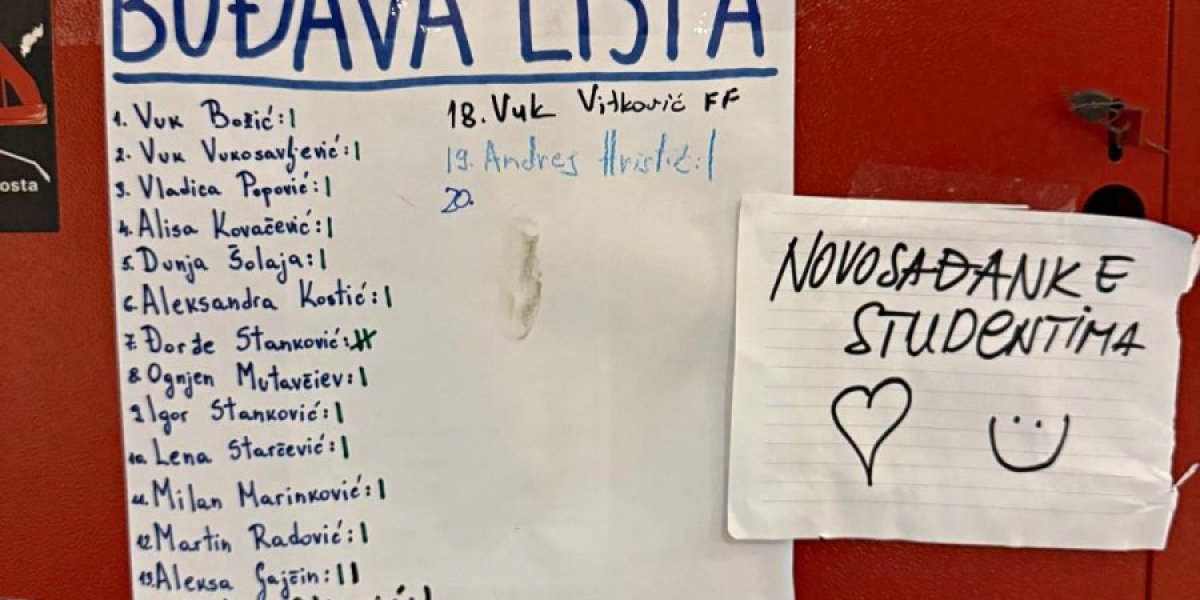 BUĐAVA LISTA
1. Vuk Božić: |
2. Vuk Vukosavljević: |
3. Vladica Popović: |
4. Alisa Kovačević: |
5. Dunja Šolaja: |
6. Aleksandra Kostić: |
7. Đorđe Stanković:
8. Ognjen Mutavčiev: |
9. Igor Stanković: |
10. Lena Starčević: |
11. Milan Marinković: |
12. Martin Radović: |
13. Aleksa Gajčin: ||
18. Vuk Vitković FF
19. Andrej Hristić: |
20.
NOVOSAĐANKE
STUDENTIMA
osta